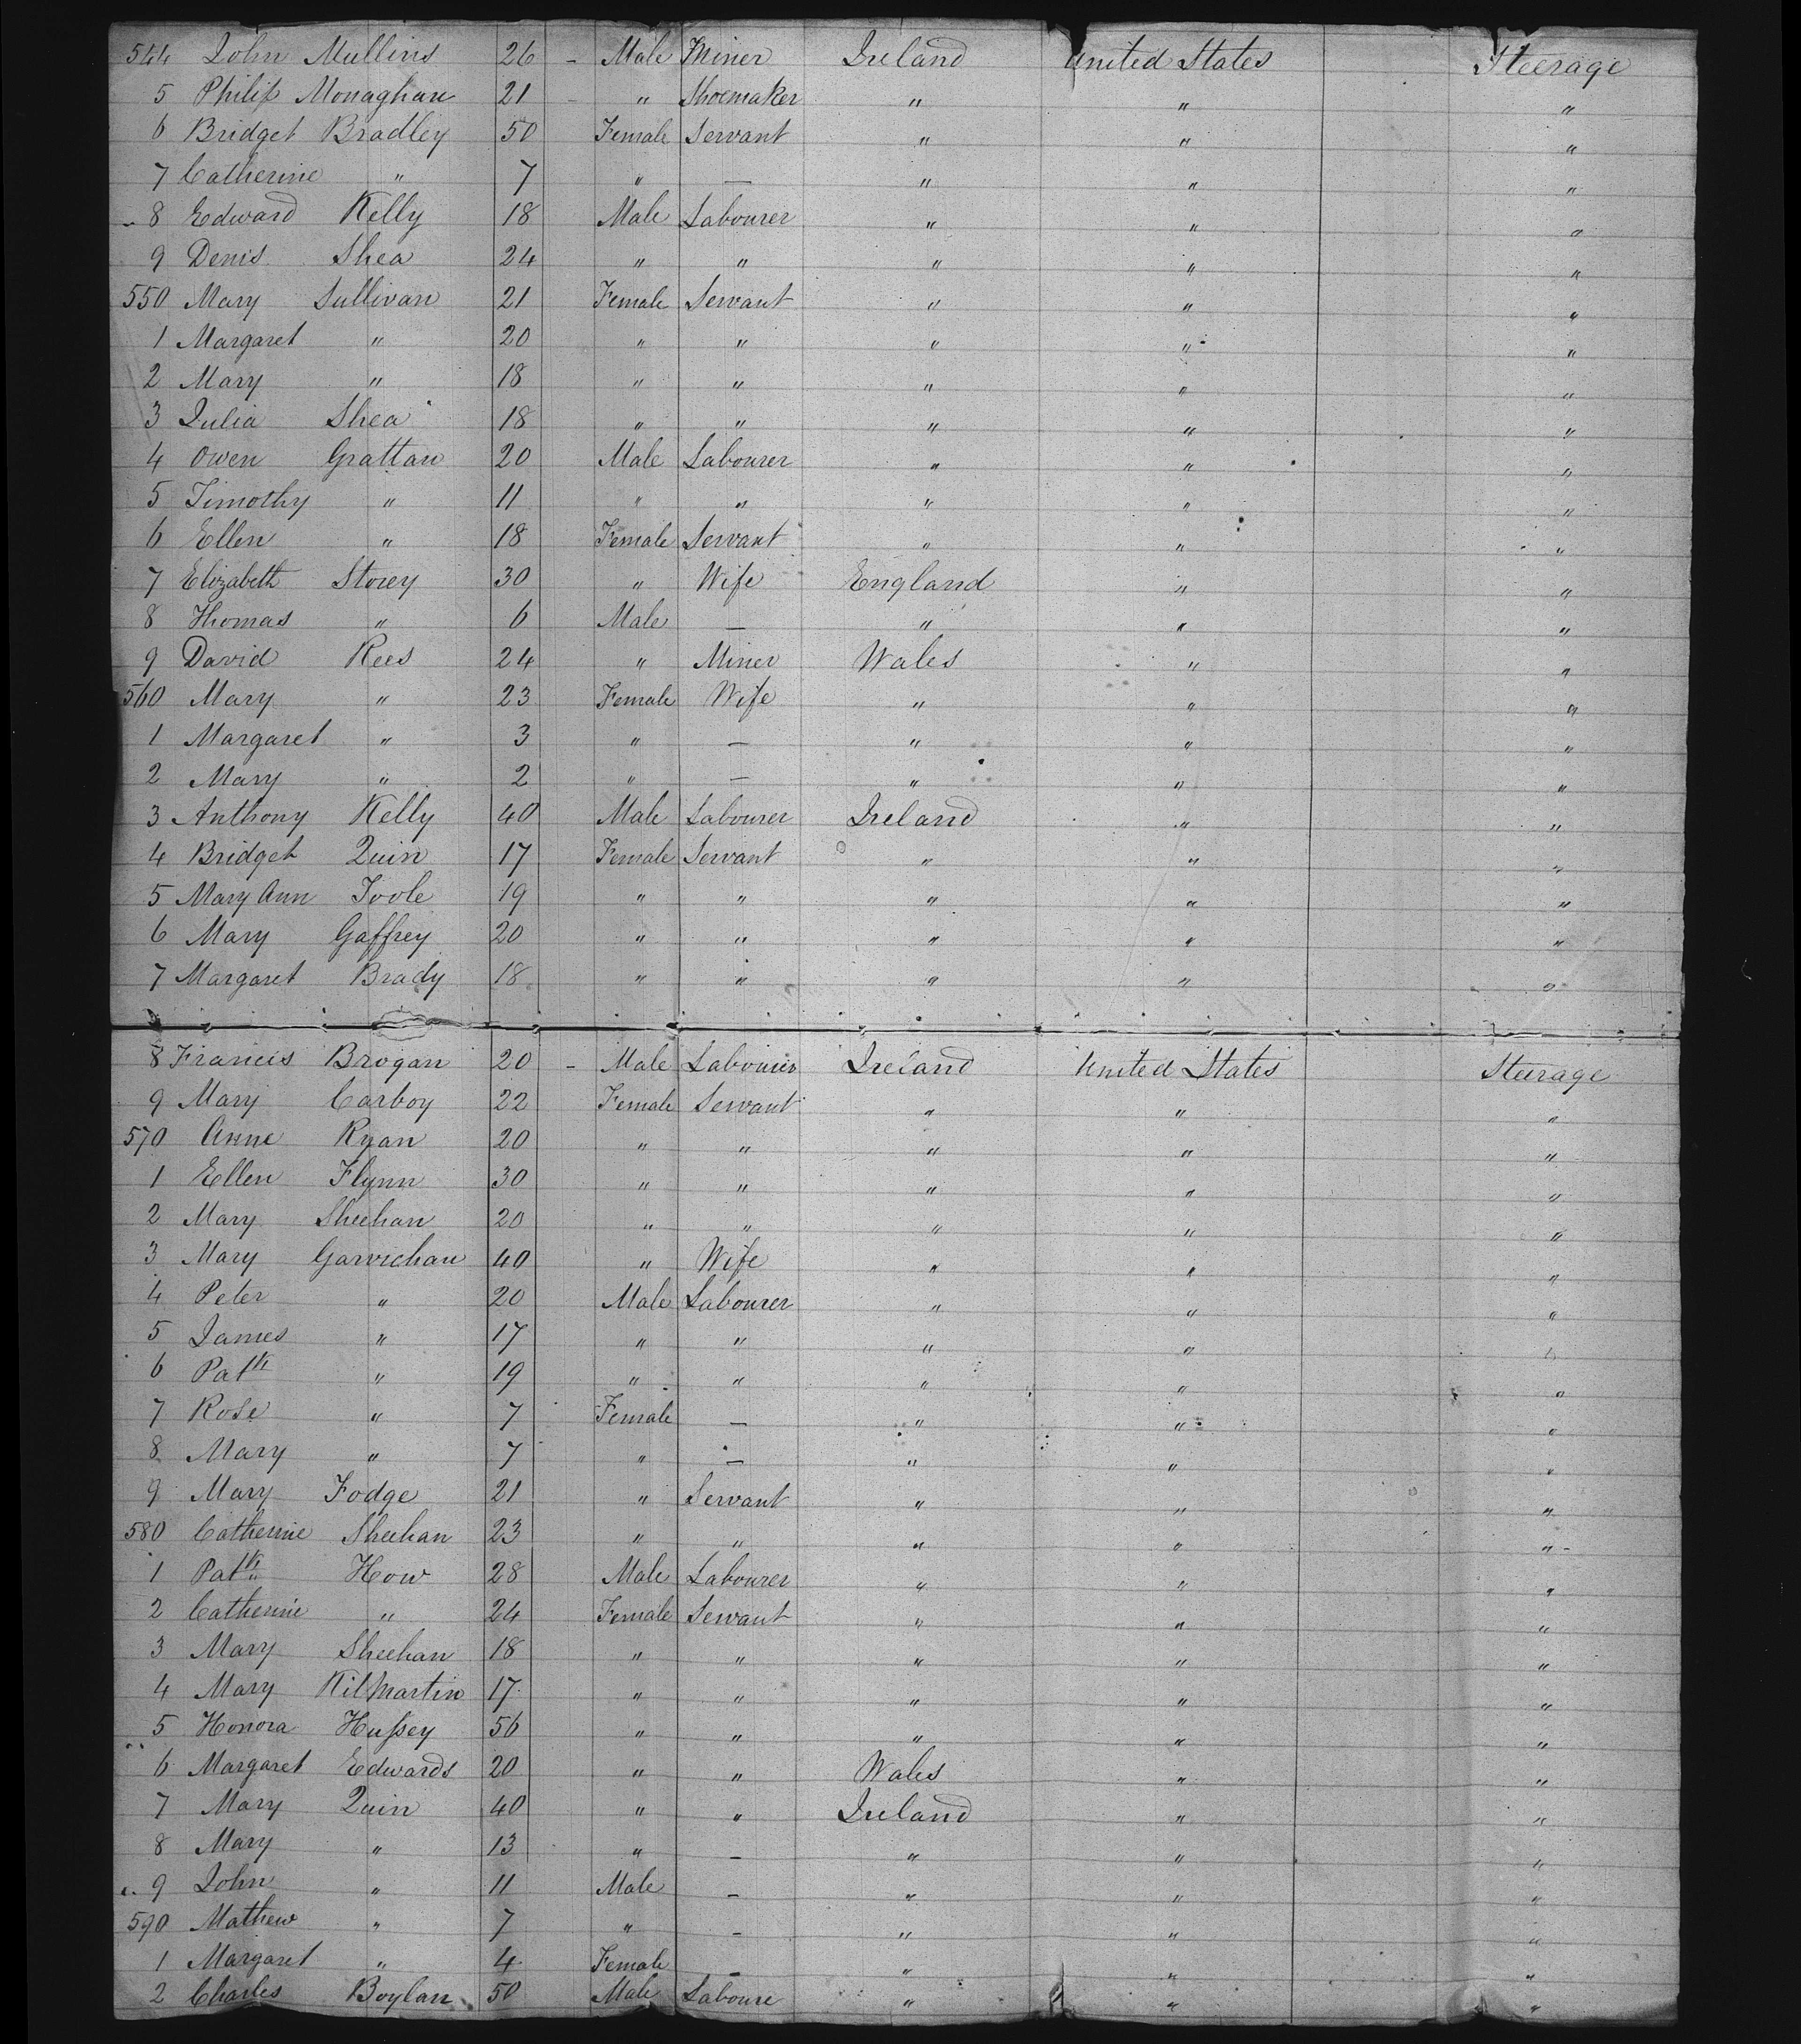 544 John Mullins 26 - Male Miner Ireland United States Steerage
5 Philip Monaghan 21 - " Shoemaker " " "
6 Bridget Bradley 50 Female Servant " " "
7 Catherine " 7 " — " " "
8 Edward Kelly 18 Male Labourer " " "
9 Denis Shea 24 " " " " "
550 Mary Sullivan 21 Female Servant " " "
1 Margaret " 20 " " " " "
2 Mary " 18 " " " " "
3 Julia Shea 18 " " " " "
4 Owen Grattan 20 Male Labourer " " "
5 Timothy " 11 " " " " "
6 Ellen " 18 Female Servant " " "
7 Elizabeth Storey 30 " Wife England " "
8 Thomas " 6 Male — " " "
9 David Rees 24 " Miner Wales " "
560 Mary " 23 Female Wife " " "
1 Margaret " 3 " — " " "
2 Mary " 2 " — " " "
3 Anthony Kelly 40 Male Labourer Ireland " "
4 Bridget Quin 17 Female Servant " " "
5 Mary Ann Toole 19 " " " " "
6 Mary Gaffrey 20 " " " " "
7 Margaret Brady 18 " " " " "
8 Francis Brogan 20 - Male Labourer Ireland United States Steerage
9 Mary Carboy 22 Female Servant " " "
570 Anne Ryan 20 " " " " "
1 Ellen Flynn 30 " " " " "
2 Mary Sheehan 20 " " " " "
3 Mary Garvichan 40 " Wife " " "
4 Peter " 20 Male Labourer " " "
5 James " 17 " " " " "
6 Patk " 19 " " " " "
7 Rose " 7 Female — " " "
8 Mary " 7 " — " " "
9 Mary Fodge 21 " Servant " " "
580 Catherine Sheehan 23 " " " " "
1 Patk How 28 Male Labourer " " "
2 Catherine " 24 Female Servant " " "
3 Mary Sheehan 18 " " " " "
4 Mary KilMartin 17 " " " " "
5 Honora Hussey 56 " " " " "
6 Margaret Edwards 20 " " Wales " "
7 Mary Quin 40 " " Ireland " "
8 Mary " 13 " — " " "
9 John " 11 Male — " " "
590 Mathew " 7 " — " " "
1 Margaret " 4 Female — " " "
2 Charles Boylan 50 Male Laboure " " "